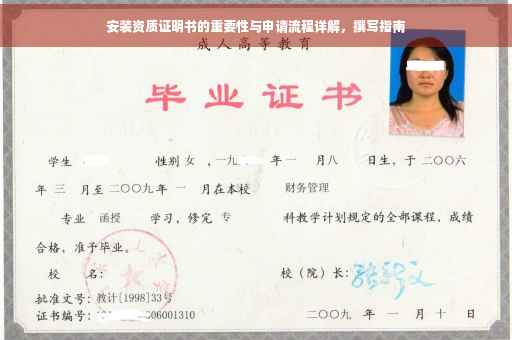 安装资质证明书的重要性与申请流程详解，撰写指南
成人高等教育
毕业证书
学生 性别 女 ，一九 年一 月八 日生，于二〇〇六
年 三 月至二〇〇九年 一 月在本校 财务管理
专业 函授 学习，修完 专 科教学计划规定的全部课程，成绩
合格，准予毕业。
校 名： 校（院）长：
批准文号：教计[1998]33号
证书编号： 06001310 二〇〇九 年 一 月 十 日